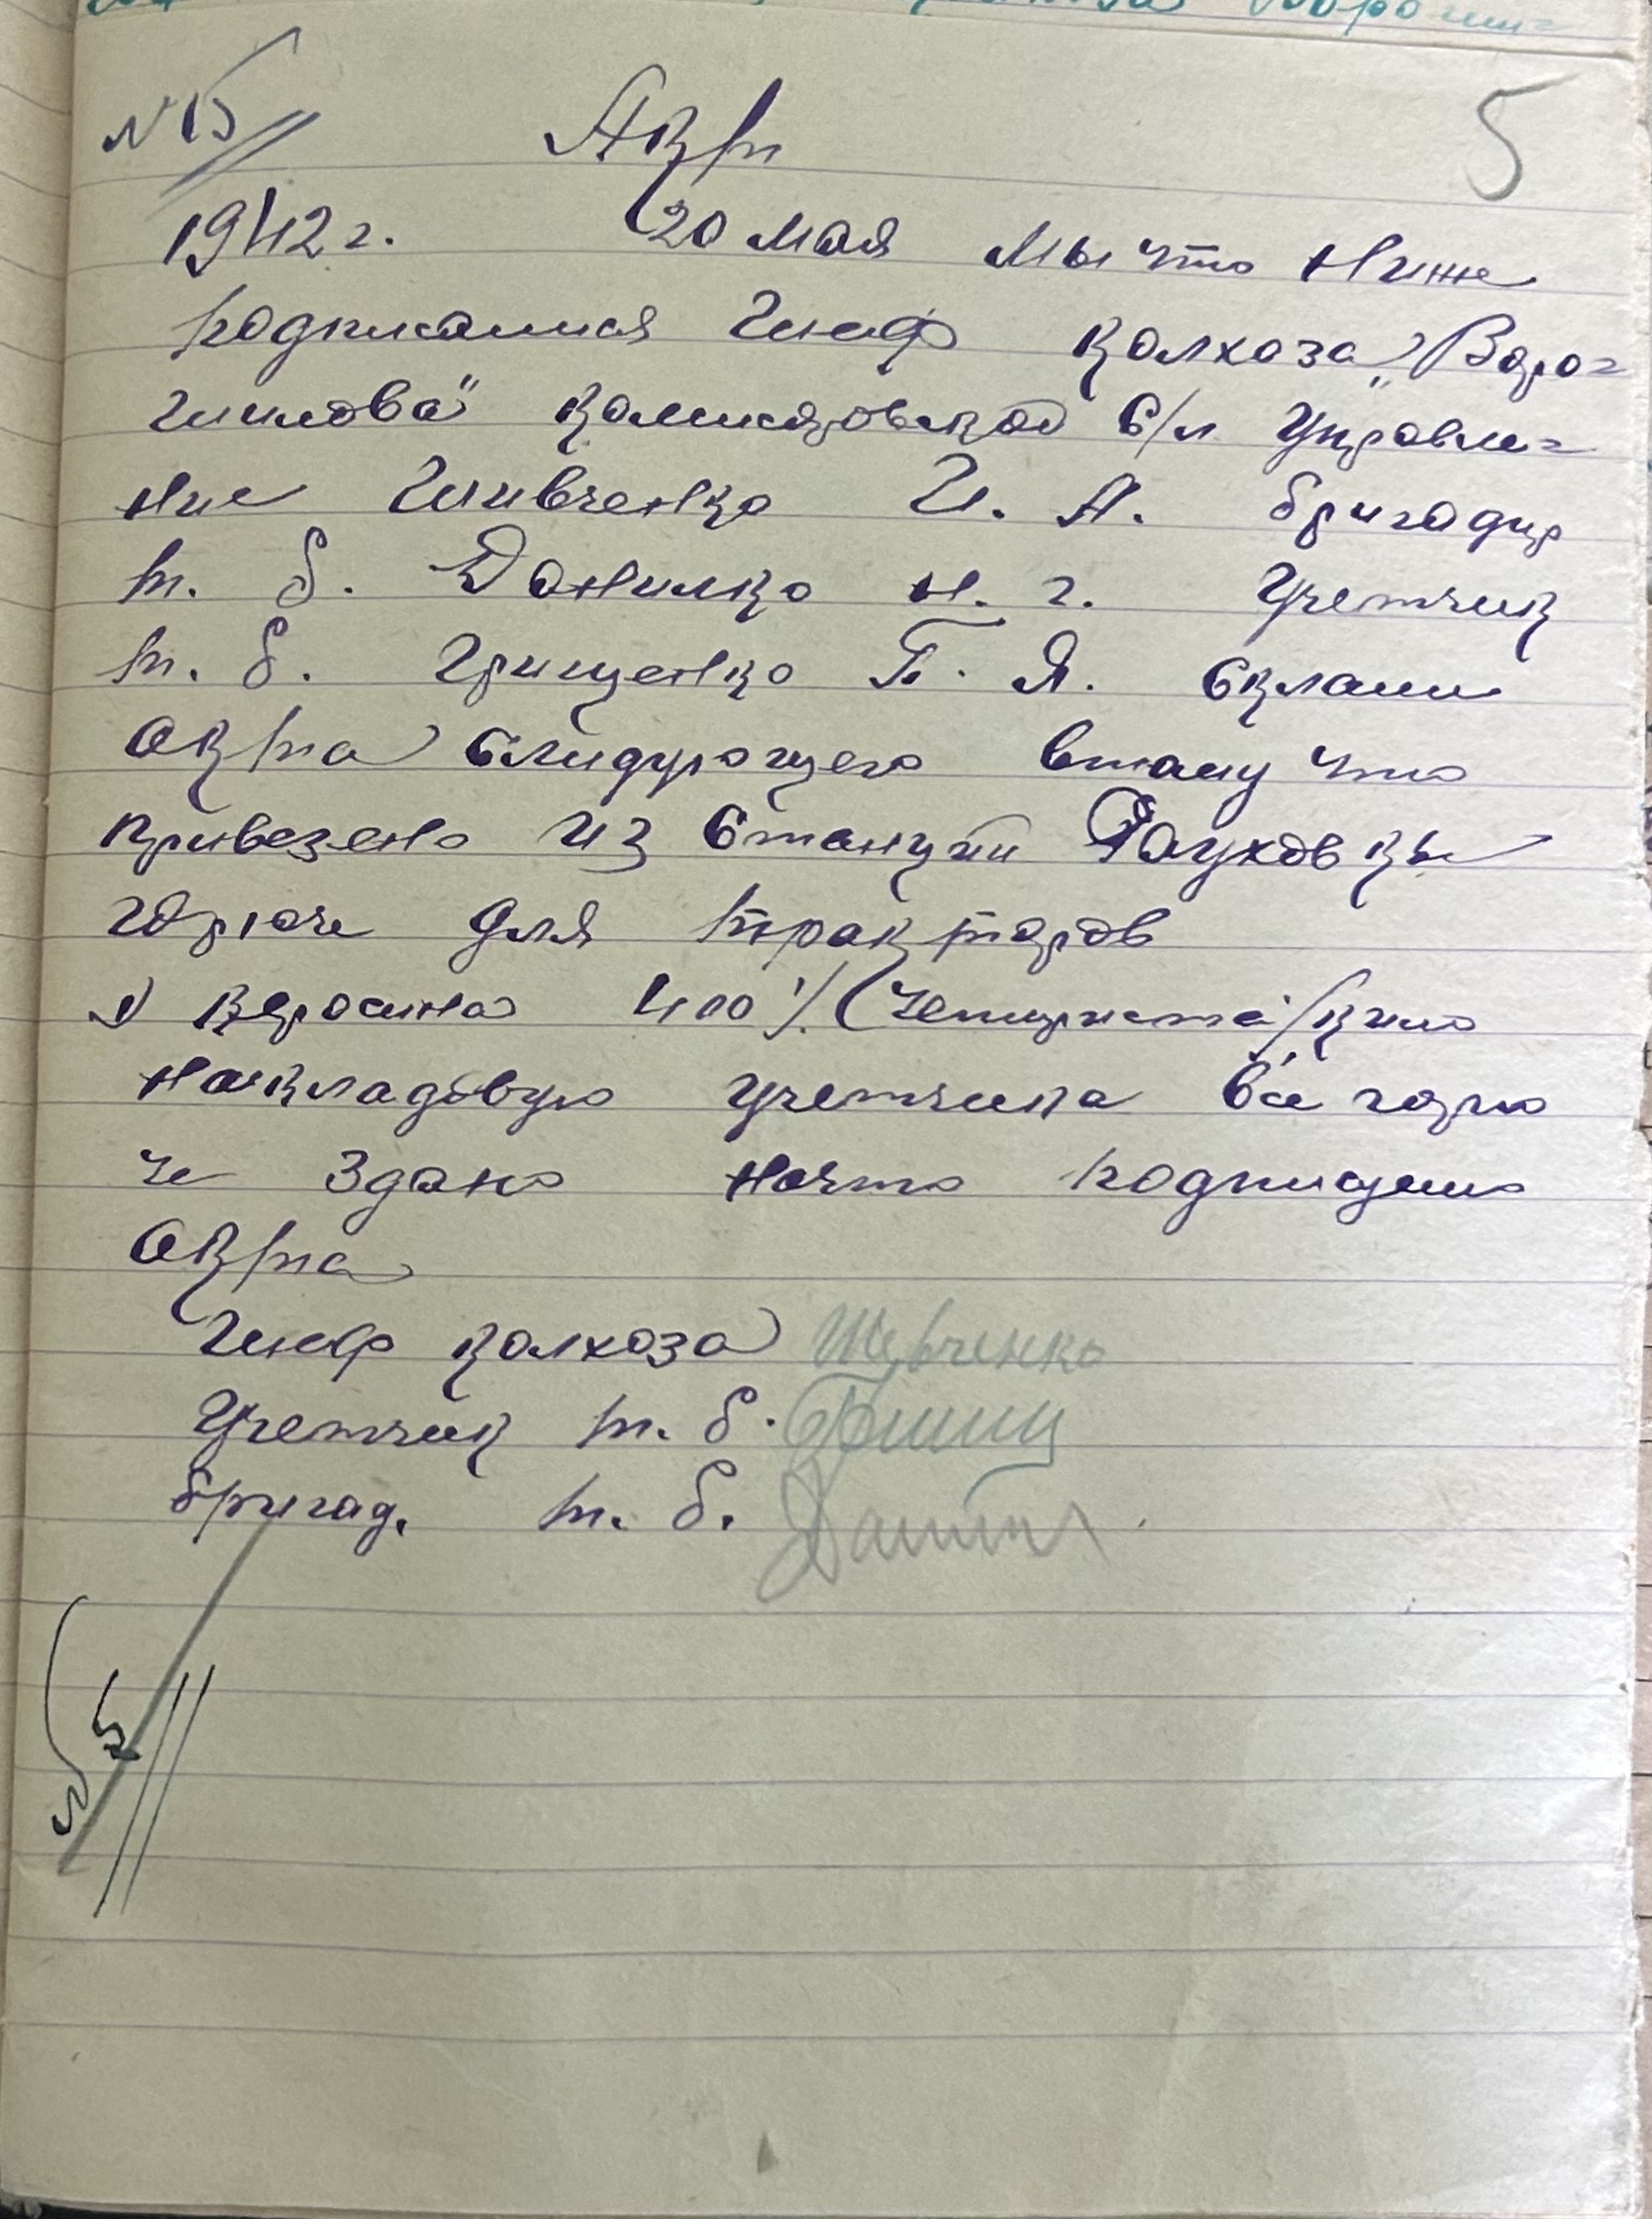 № 5
5
Акт
1942 г. 20 мая мы что ниже
подписалися Шеф колхоза „Воро=
шилова" с/п Управле=
ние Шивченко И. А. бригадир
т. б. Данилко Н. г. Учетчик
т. б. Грищенко П. Я. склали
акта слидующего втому что
привезено из станции Рауховкы
горюче для тракторов
1) керосина 400 кило
накладовую учетчика всё горю
че здано начто подписуемо
акта
Шеф колхоза Шевченко
Учетчик т. б. Грищ
бригад. т. б.
№ 5